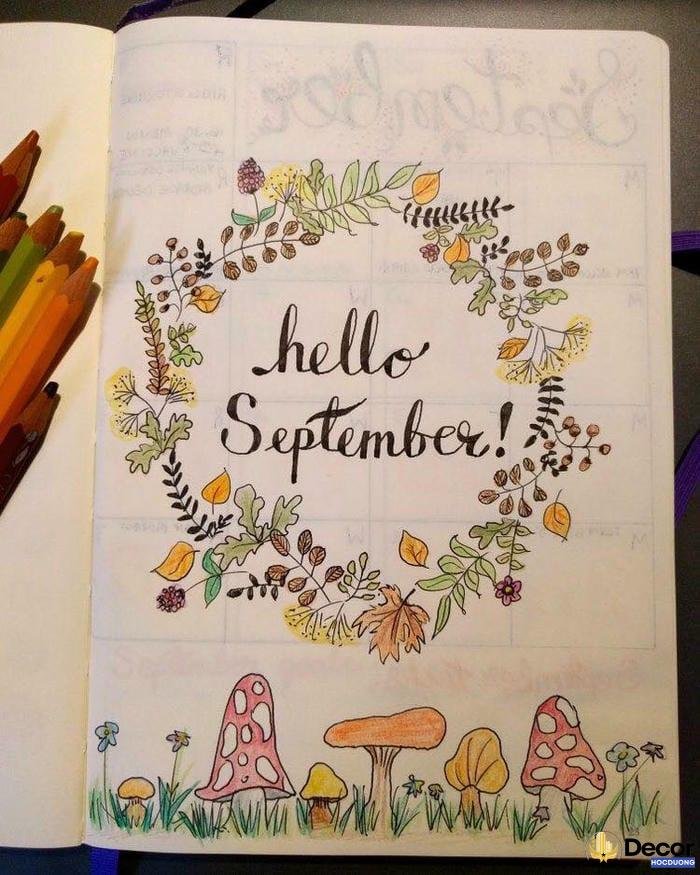 hello
September!
Decor
HOCDUONG